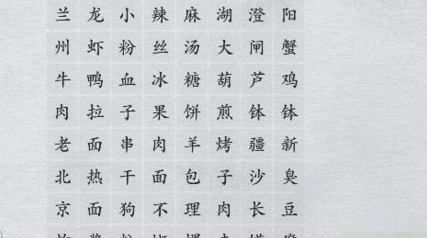 兰 龙 小 辣 麻 湖 澄 阳
州 虾 粉 丝 汤 大 闸 蟹
牛 鸭 血 冰 糖 葫 芦 鸡
肉 拉 子 果 饼 煎 钵 钵
老 面 串 肉 羊 烤 疆 新
北 热 干 面 包 子 沙 臭
京 面 狗 不 理 肉 长 豆